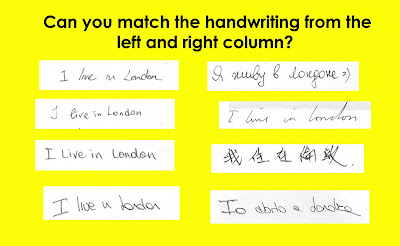 Can you match the handwriting from the
left and right column?
I live in London
Я живу в Лондоне =)
I live in London
I live in London
I Live in London
我住在倫敦.
I live in London
Io abito a Londra